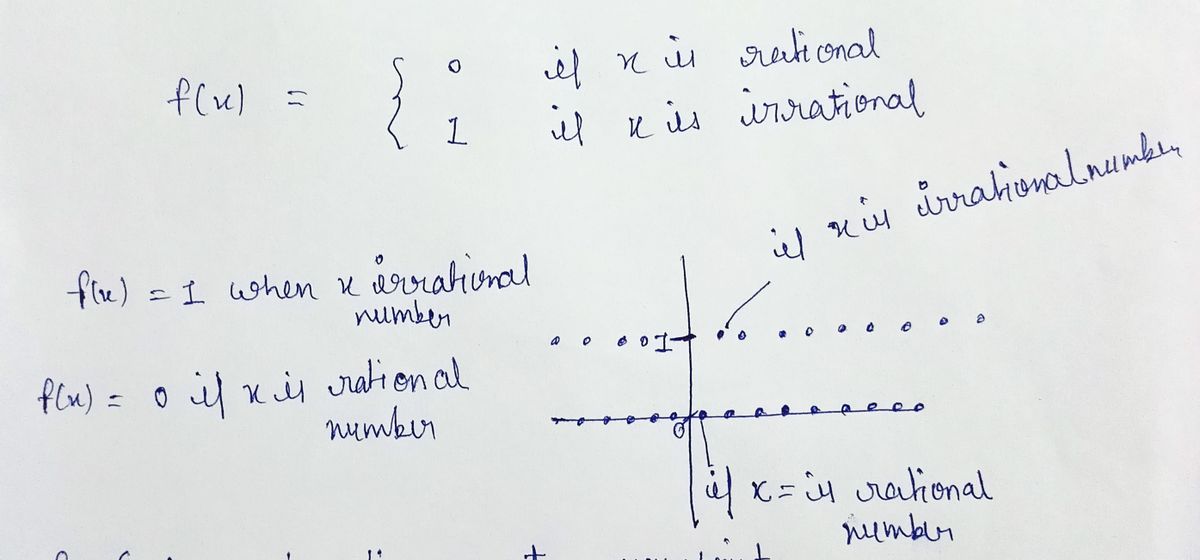 f(x) = { 0 if x is rational
1 if x is irrational
if x is irrational number
f(x) = 1 when x irrational
number
1
f(x) = 0 if x is rational
number
0
if x = is rational
number